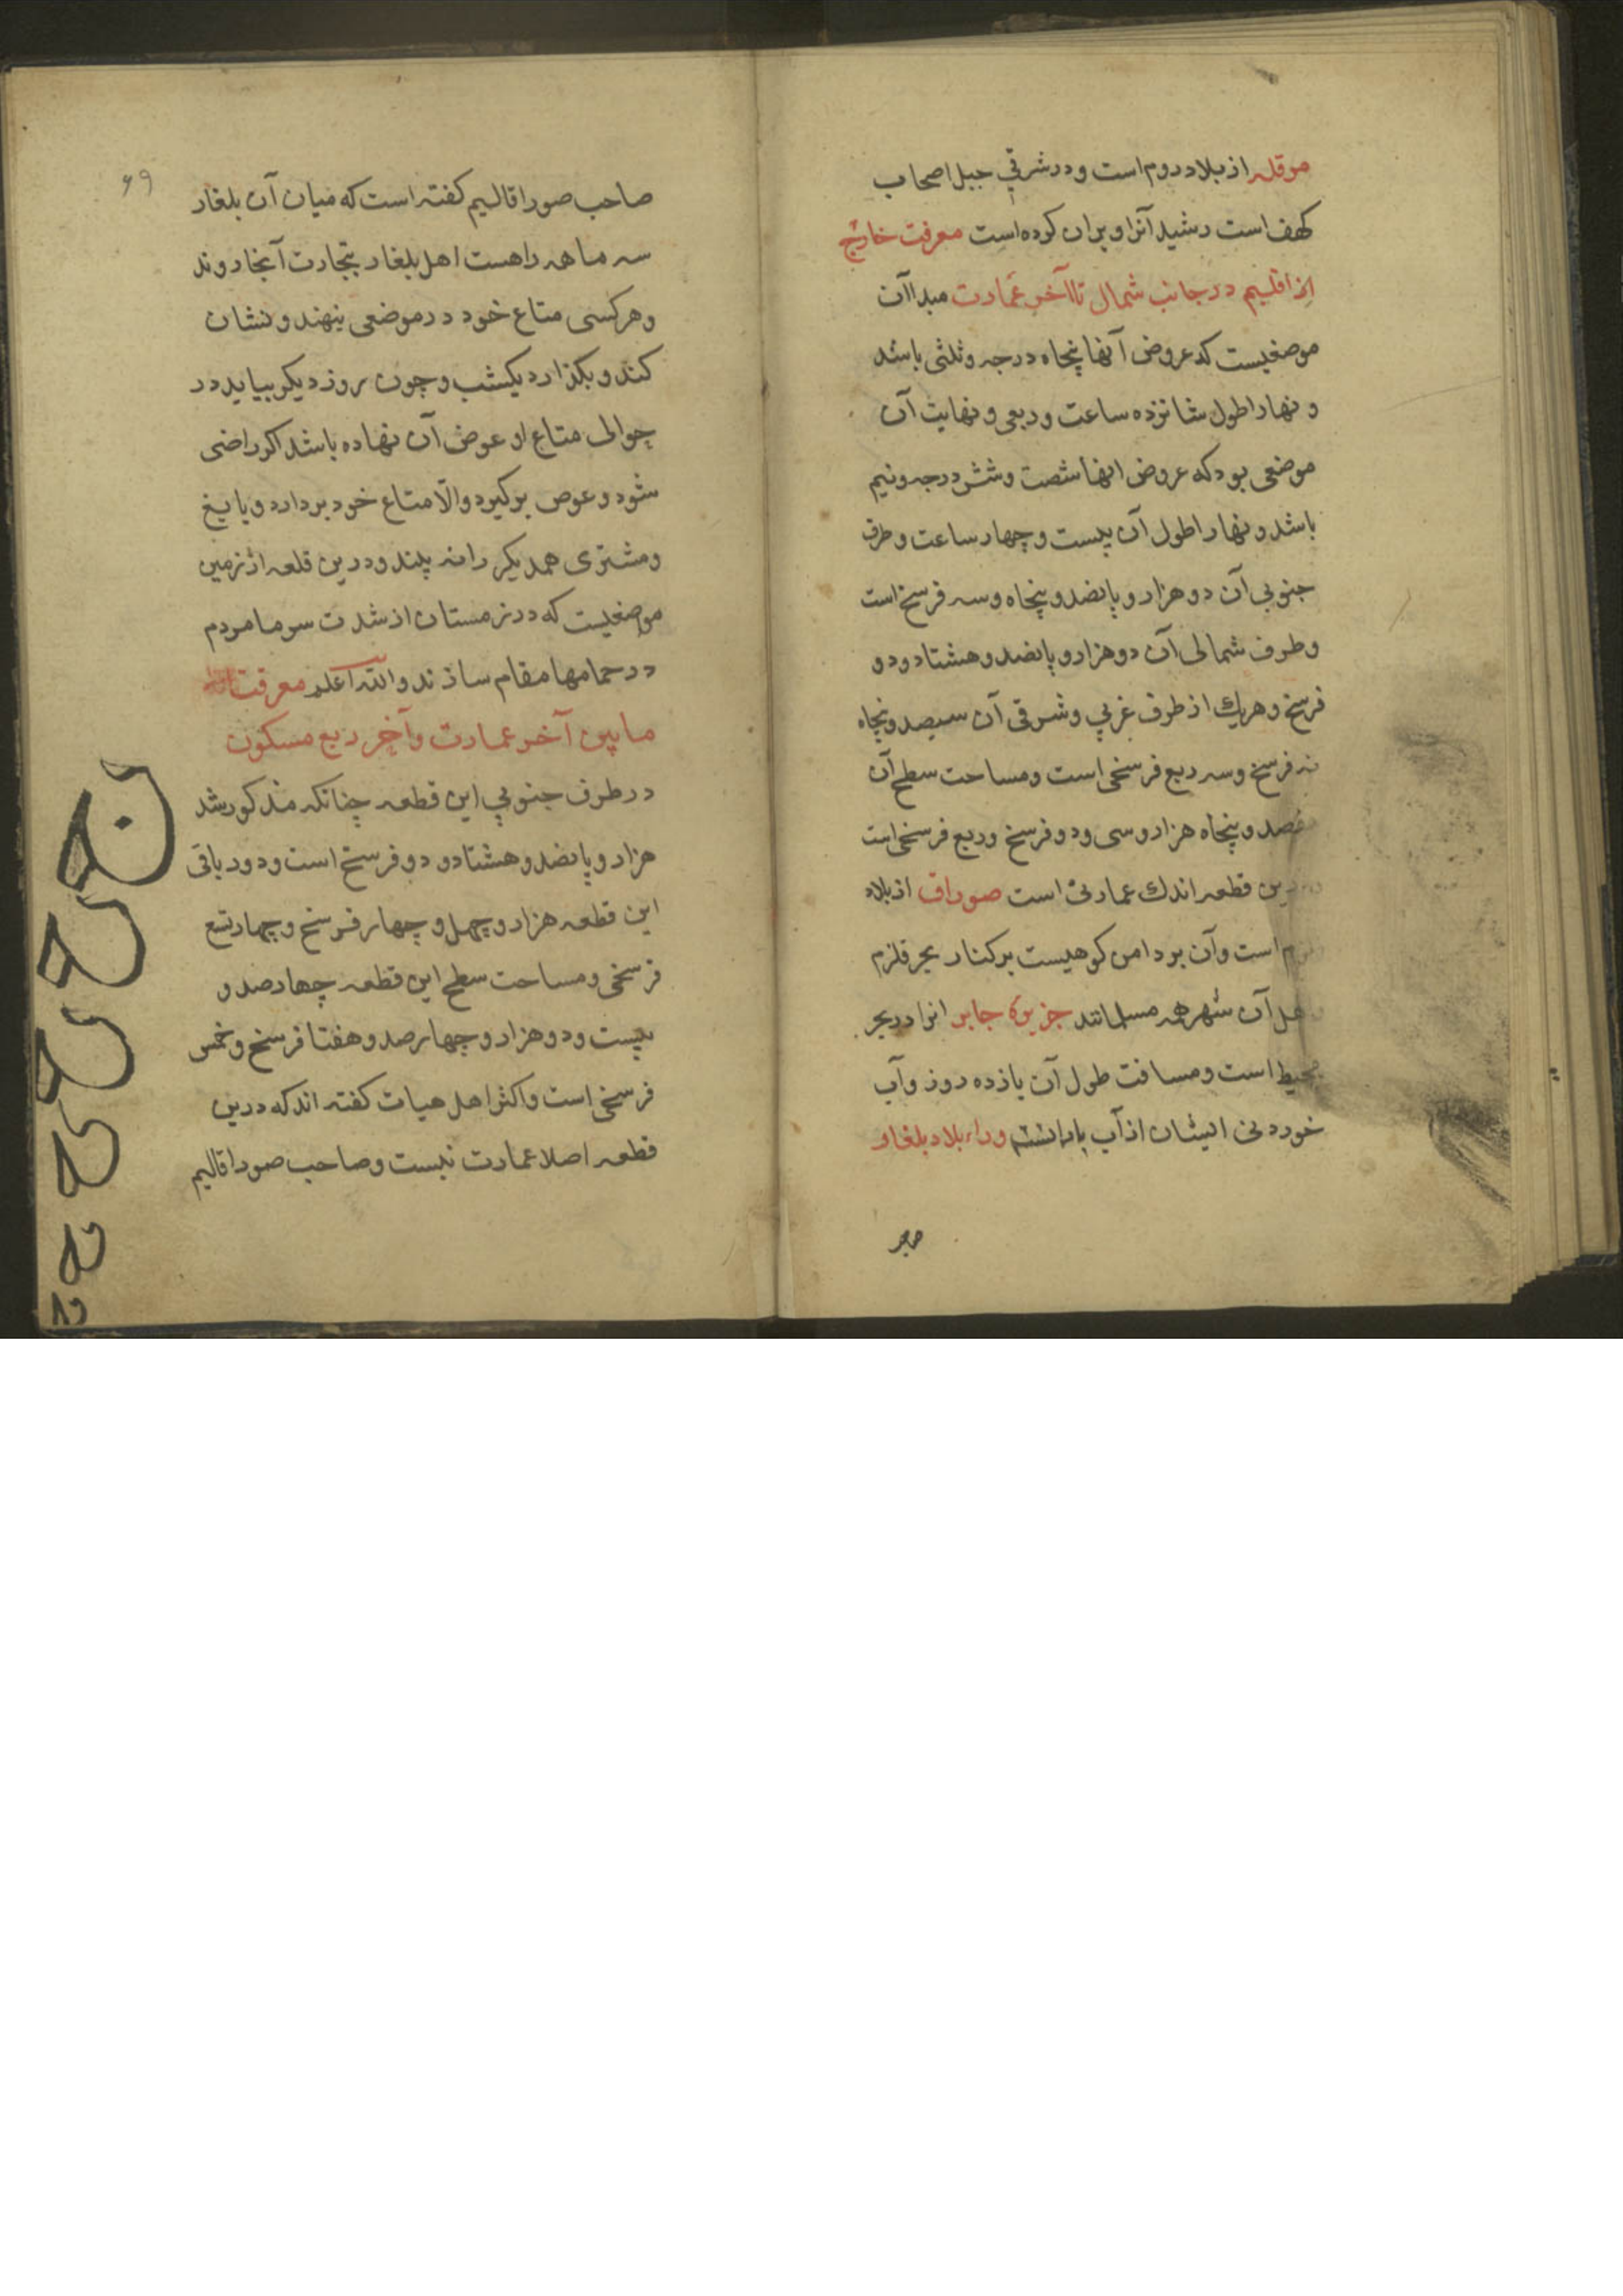 موقله از بلاد روم است و در شرقی جبل اصحاب
کهف است رشید آنرا ویران کرده است معرفت خارج
از اقلیم در جانب شمال تا آخر عمارت مبدا آن
موضعیست که عروض آنها پنجاه درجه و ثلثی باشد
و نهار اطول شانزده ساعت و ربعی و نهایت آن
موضعی بود که عروض انها شصت و شش درجه و نیم
باشد و نهار اطول آن بیست و چهار ساعت و طرف
جنوبی آن دو هزار و پانصد و پنجاه و سه فرسخ است
و طرف شمالی آن دو هزار و پانصد و هشتاد و دو
فرسخ و هریك از طرف غربی و شرقی آن سیصد و پنجاه
نه فرسخ و سه ربع فرسخی است و مساحت سطح آن
و پنجاه هزار و سی و دو فرسخ و ربع فرسخی است
قطعه اندك عمارتی است صوداق از بلاد
است و آن بر دامن کوهیست بر کنار بحر قلزم
اهل آن شهر همه مسلمانند جزیره جابر انرا در بحر
محیط است و مسافت طول آن یازده روز و آب
خوردنی ایشان از آب بارانست وراء بلاد بلغار
صاحب صور اقالیم کفته است که میان آن بلغار
سه ماهه راهست اهل بلغار بتجارت آنجا روند
و هرکسی متاع خود در موضعی بنهند و نشان
کنند و بکذارد یکشب و چون روز دیکر بیاید در
حوالی متاع او عوض آن نهاده باشد اکر راضی
شود و عوص برکیرد و الّا متاع خود بردارد و بایع
و مشتری همدیکر را نه بینند و درین قلعه از زمین
موضعیست که در زمستان از شدت سرما مردم
در حمامها مقام سازند والله اعلم معرفت
ما بین آخر عمارت و آخر ربع مسکون
در طرف جنوبی این قطعه چنانکه مذکور شد
هزار و پانصد و هشتاد و دو فرسخ است و دور باقی
این قطعه هزار و چهل و چهار فرسخ و چهار تسع
فرسخی و مساحت سطح این قطعه چهارصد و
بیست و دو هزار و چهارصد و هفتا فرسخ و خمس
فرسخی است و اکثر اهل هیات کفته اند که درین
قطعه اصلا عمارت نیست و صاحب صور اقالیم